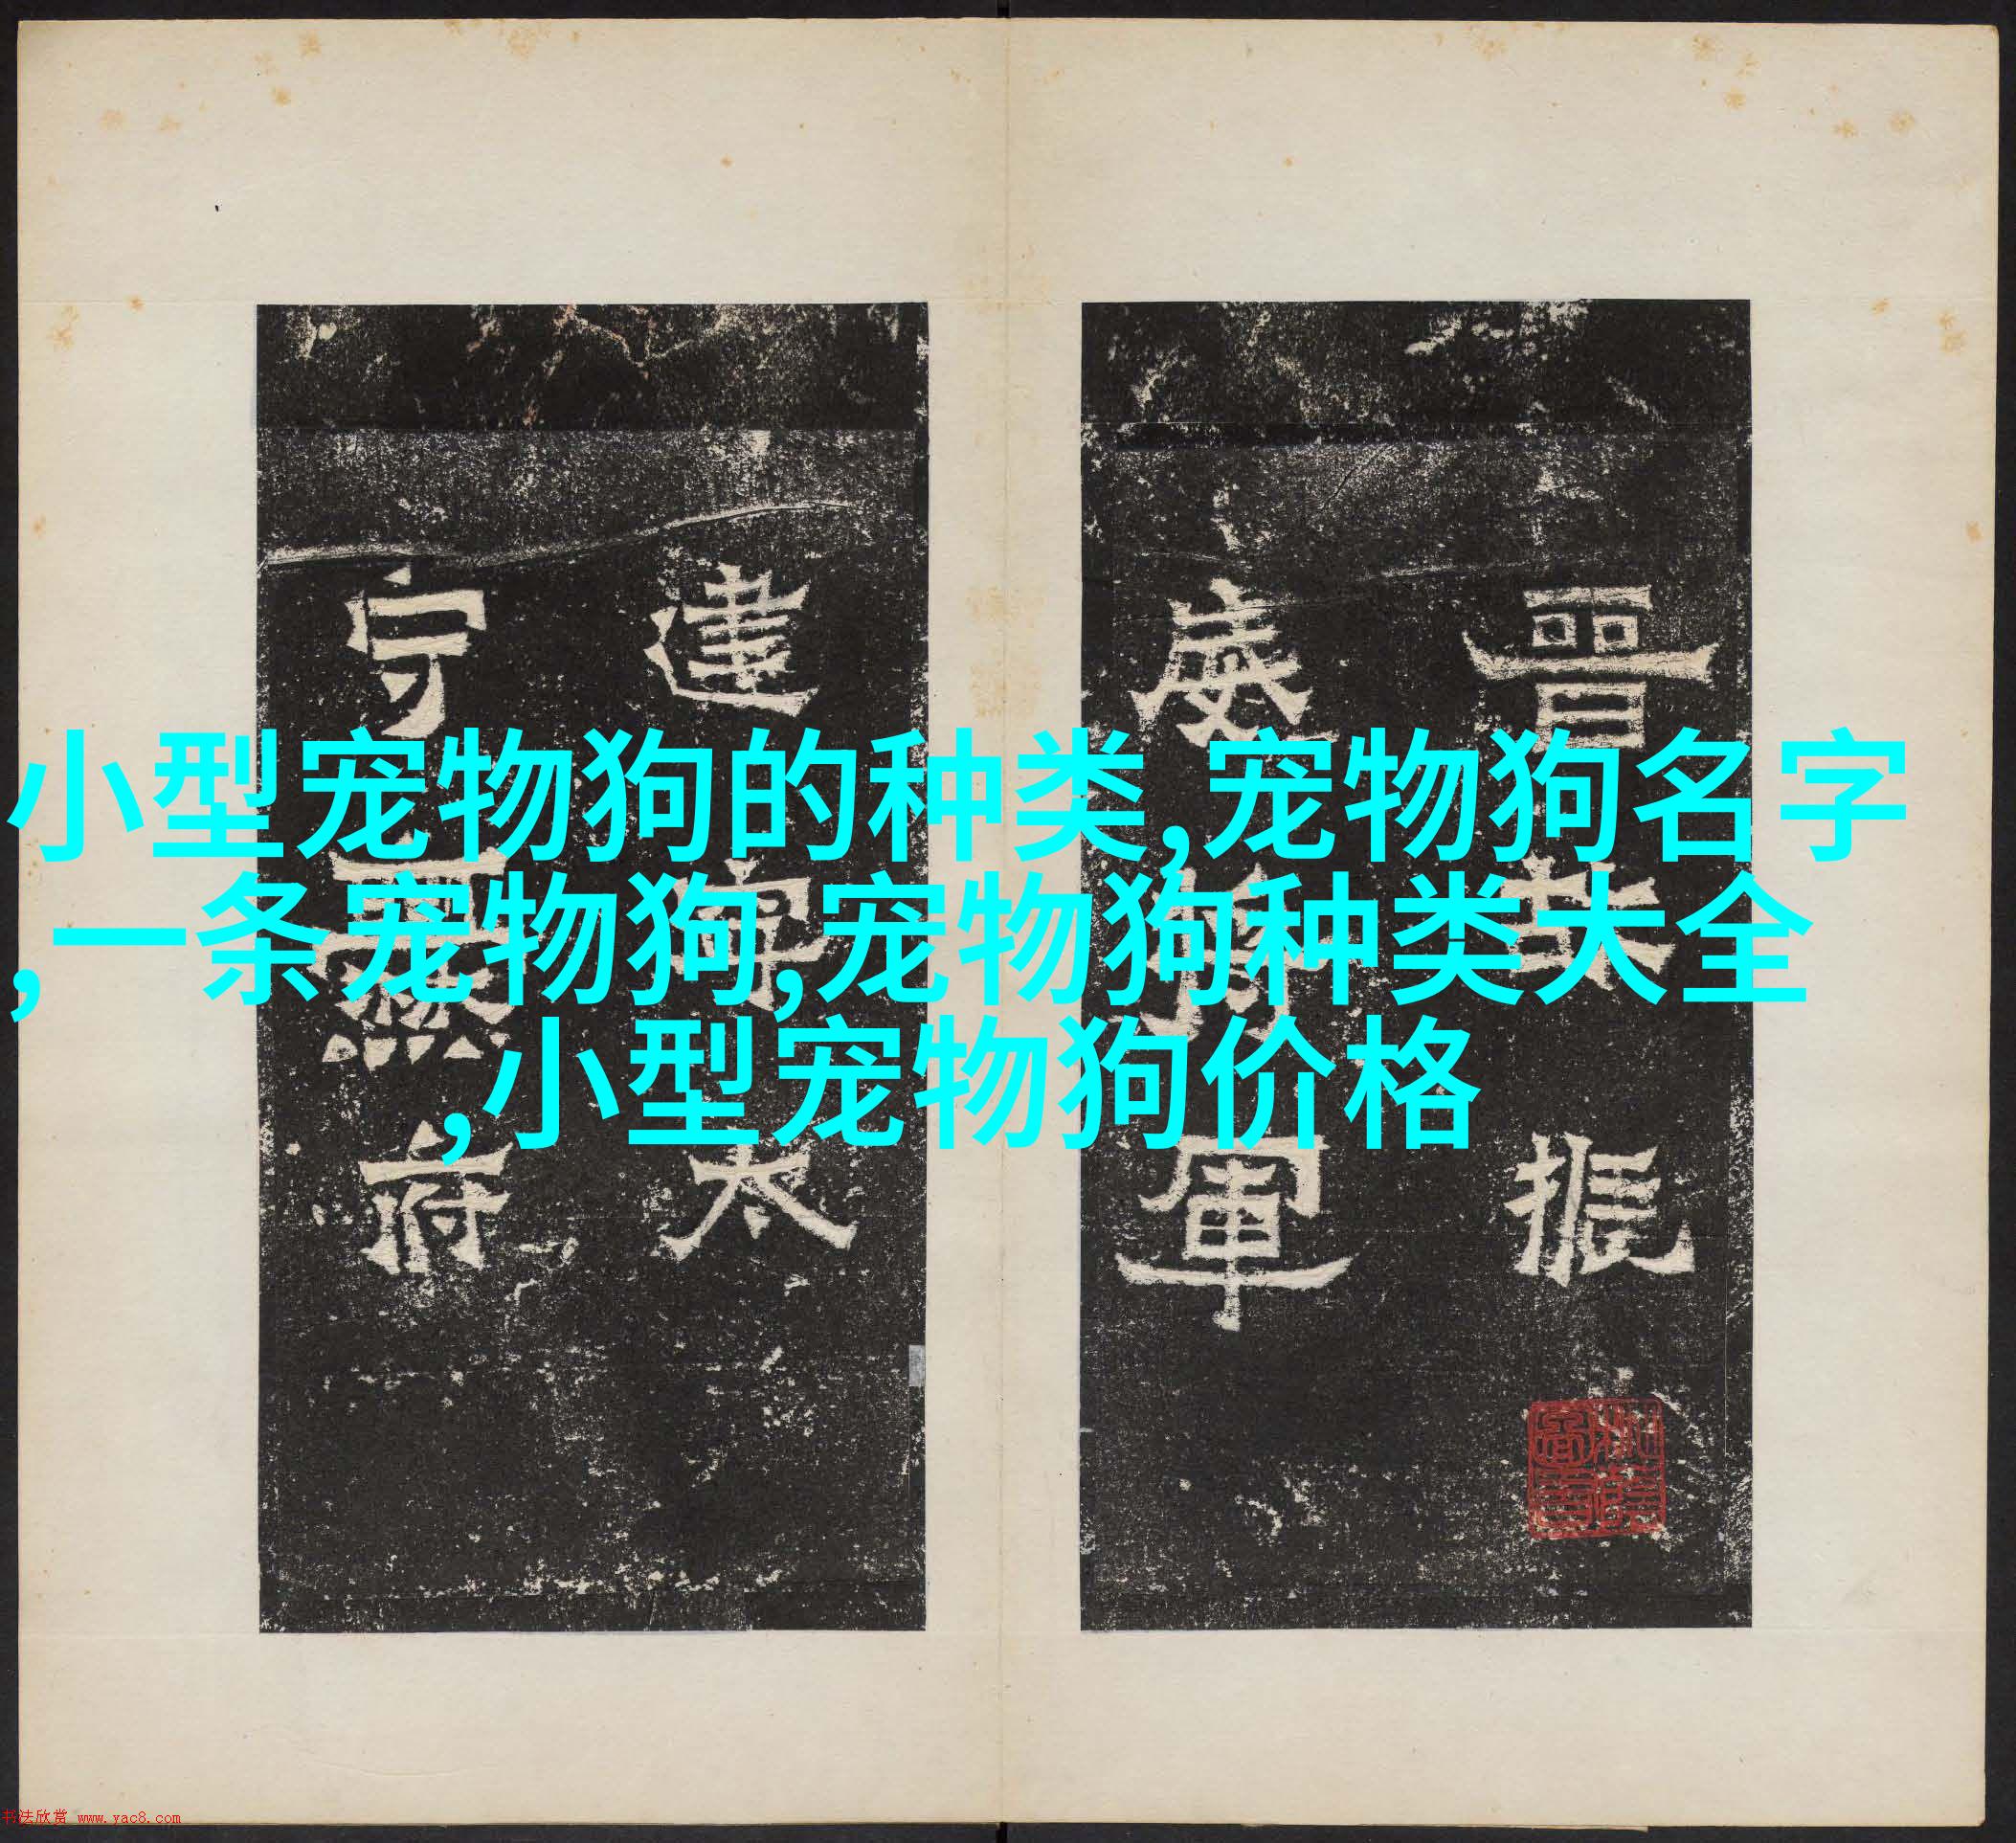 小型宠物狗的种类,宠物狗名字
,一条宠物狗,宠物狗种类大全
,小型宠物狗价格
晋 振
威 将軍
建 軍 太
守 無 府
书法欣赏 www.yac8.com